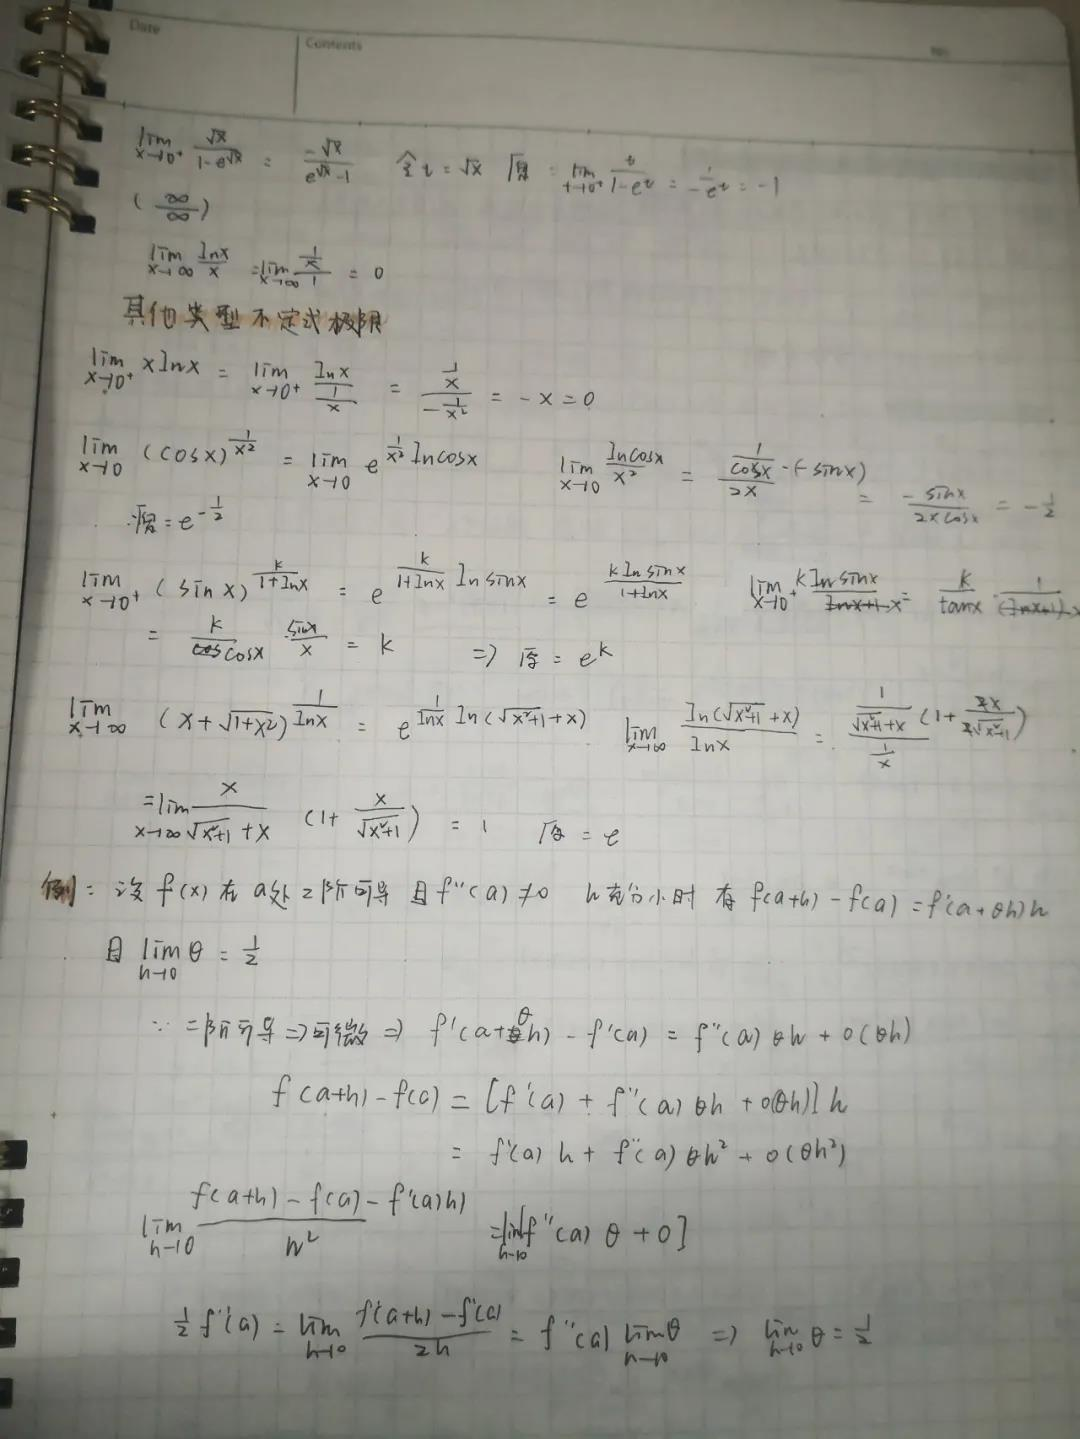 Date
Contents
lim x→0⁺ √x/(1-e^√x) = -√x/(e^√x-1) 令t=√x 原= lim t→0⁺ t/(1-e^t) = 1/(-e^t) = -1
(∞/∞)
lim x→∞ lnx/x = lim x→∞ (1/x)/1 = 0
其他类型不定式极限
lim x→0⁺ xlnx = lim x→0⁺ lnx/(1/x) = (1/x)/(-1/x²) = -x = 0
lim x→0 (cosx)^(1/x²) = lim x→0 e^(1/x² lncosx) lim x→0 lncosx/x² = (1/cosx ·(-sinx))/(2x) = -sinx/(2xcosx) = -1/2
原=e^(-1/2)
lim x→0⁺ (sinx)^(k/(1+lnx)) = e^(k/(1+lnx) lnsinx) = e^(klnsinx/(1+lnx)) lim x→0⁺ klnsinx/(lnx+1)·x = k/tanx · 1/(lnx+1)·x
= k/cosx sinx/x = k ⇒ 原=e^k
lim x→∞ (x+√(1+x²))^(1/lnx) = e^(1/lnx ln(√(x²+1)+x)) lim x→∞ ln(√(x²+1)+x)/lnx = (1/(√(x²+1)+x) (1+2x/(2√(x²+1))))/(1/x)
=lim x→∞ x/(√(x²+1)+x) (1+x/√(x²+1)) = 1 原=e
例: 设f(x)在a处2阶可导 且f''(a)≠0 h充分小时 有f(a+h)-f(a)=f'(a+θh)h
且 lim h→0 θ = 1/2
∵ 二阶可导⇒可微⇒ f'(a+θh)-f'(a) = f''(a)θh+o(θh)
f(a+h)-f(a) = [f'(a)+f''(a)θh+o(θh)]h
= f'(a)h+f''(a)θh²+o(θh²)
lim h→0 (f(a+h)-f(a)-f'(a)h)/h² = lim h→0 [f''(a)θ+0]
1/2 f''(a) = lim h→0 (f'(a+h)-f'(a))/2h = f''(a) lim h→0 θ ⇒ lim h→0 θ = 1/2